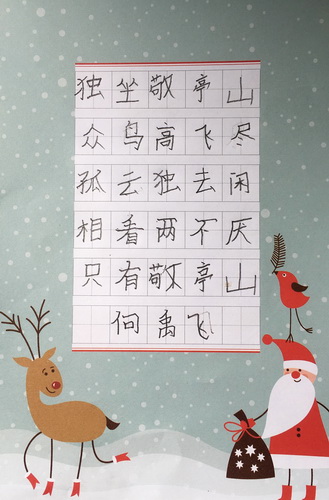 独坐敬亭山
众鸟高飞尽
孤云独去闲
相看两不厌
只有敬亭山
何禹飞